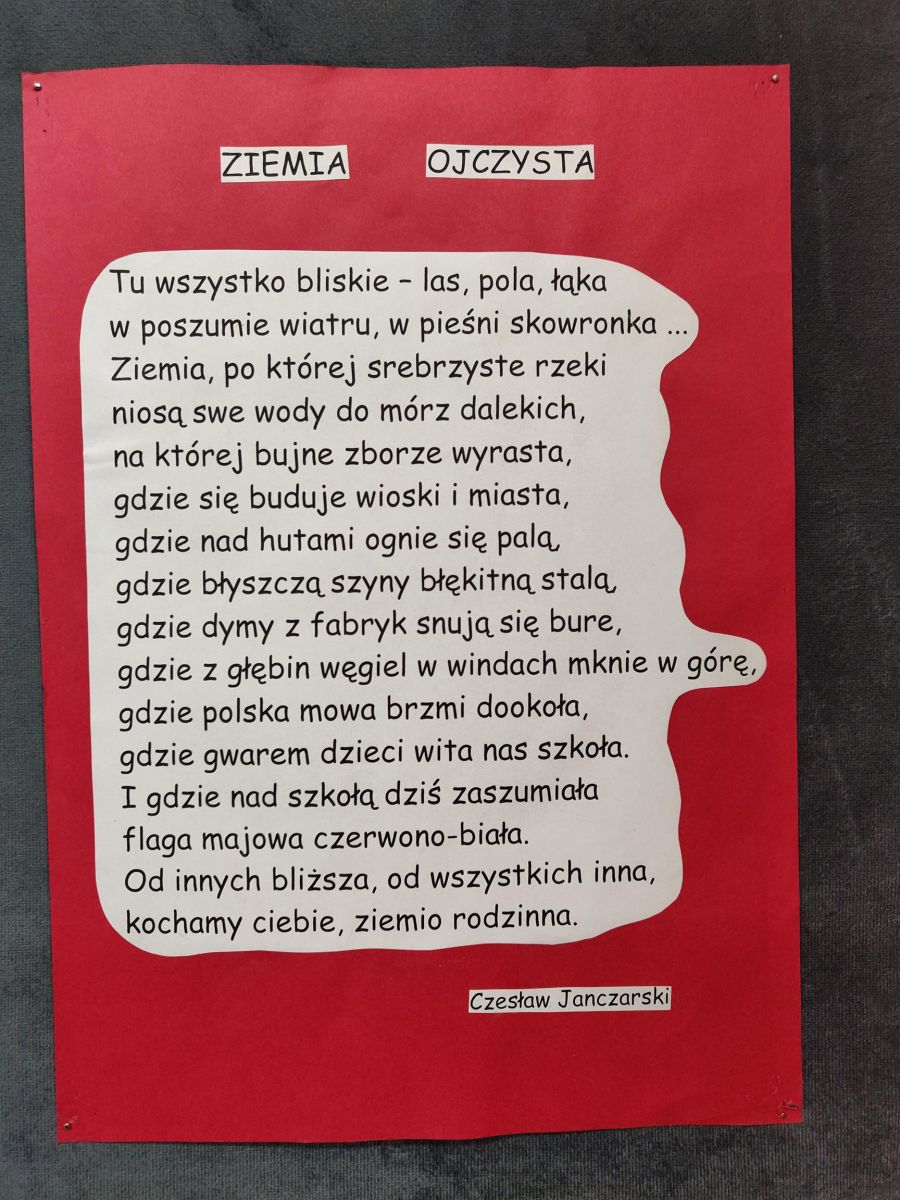 ZIEMIA OJCZYSTA
Tu wszystko bliskie – las, pola, łąka
w poszumie wiatru, w pieśni skowronka ...
Ziemia, po której srebrzyste rzeki
niosą swe wody do mórz dalekich,
na której bujne zborze wyrasta,
gdzie się buduje wioski i miasta,
gdzie nad hutami ognie się palą,
gdzie błyszczą szyny błękitną stalą,
gdzie dymy z fabryk snują się bure,
gdzie z głębin węgiel w windach mknie w górę,
gdzie polska mowa brzmi dookoła,
gdzie gwarem dzieci wita nas szkoła.
I gdzie nad szkołą dziś zaszumiała
flaga majowa czerwono-biała.
Od innych bliższa, od wszystkich inna,
kochamy ciebie, ziemio rodzinna.
Czesław Janczarski